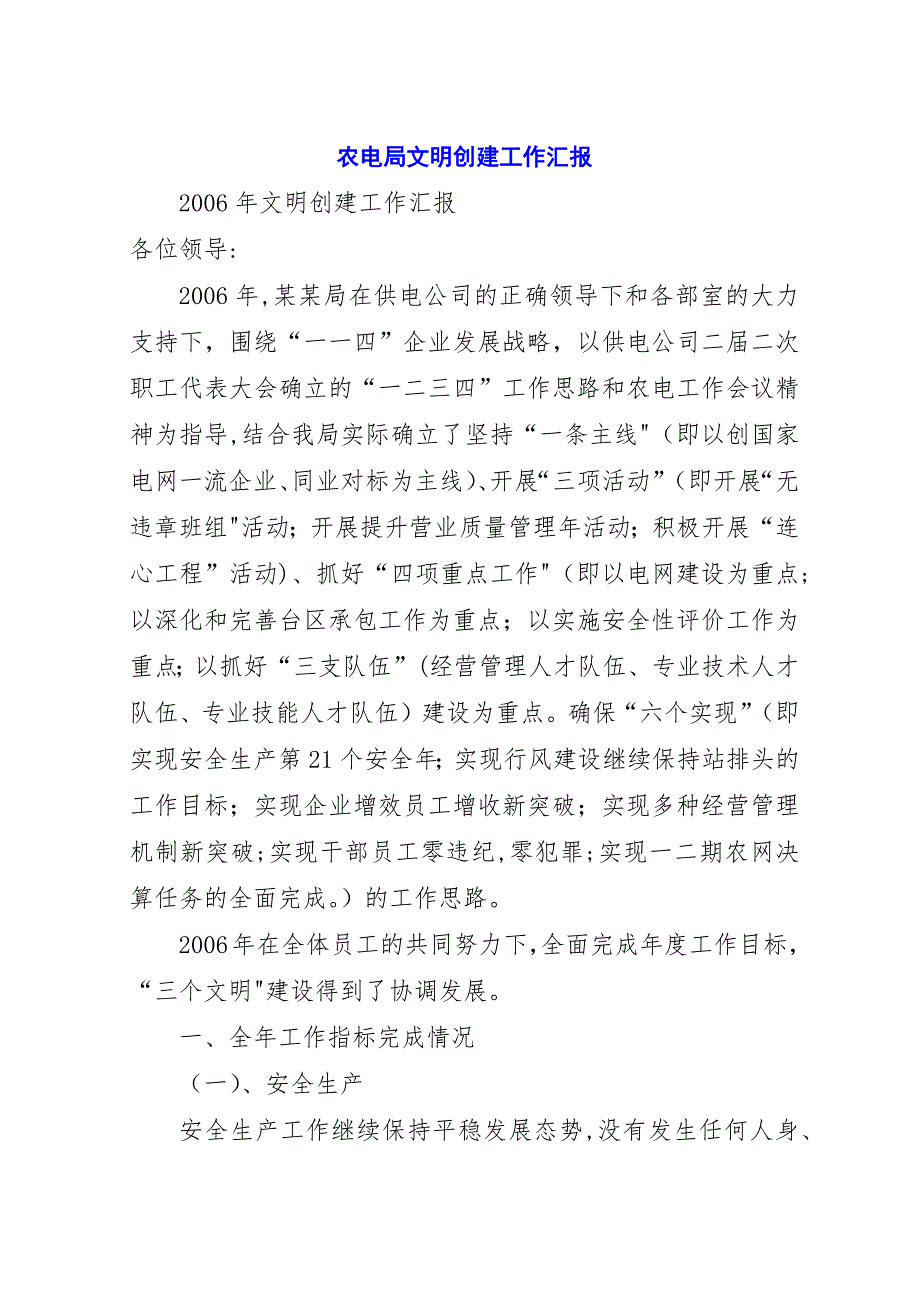 农电局文明创建工作汇报
2006 年文明创建工作汇报
各位领导:
2006 年,某某局在供电公司的正确领导下和各部室的大力
支持下，围绕“一一四”企业发展战略，以供电公司二届二次
职工代表大会确立的“一二三四”工作思路和农电工作会议精
神为指导,结合我局实际确立了坚持“一条主线"（即以创国家
电网一流企业、同业对标为主线）、开展“三项活动”（即开展“无
违章班组"活动；开展提升营业质量管理年活动；积极开展“连
心工程”活动)、抓好“四项重点工作"（即以电网建设为重点;
以深化和完善台区承包工作为重点；以实施安全性评价工作为
重点；以抓好“三支队伍”(经营管理人才队伍、专业技术人才
队伍、专业技能人才队伍）建设为重点。确保“六个实现”（即
实现安全生产第 21 个安全年；实现行风建设继续保持站排头的
工作目标；实现企业增效员工增收新突破；实现多种经营管理
机制新突破;实现干部员工零违纪,零犯罪;实现一二期农网决
算任务的全面完成。）的工作思路。
2006 年在全体员工的共同努力下,全面完成年度工作目标，
“三个文明"建设得到了协调发展。
一、全年工作指标完成情况
（一）、安全生产
安全生产工作继续保持平稳发展态势,没有发生任何人身、